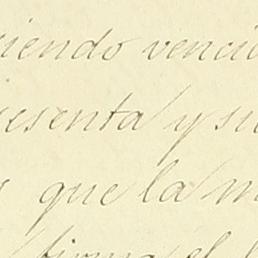 iendo venci
esenta y su
que la m
firma el